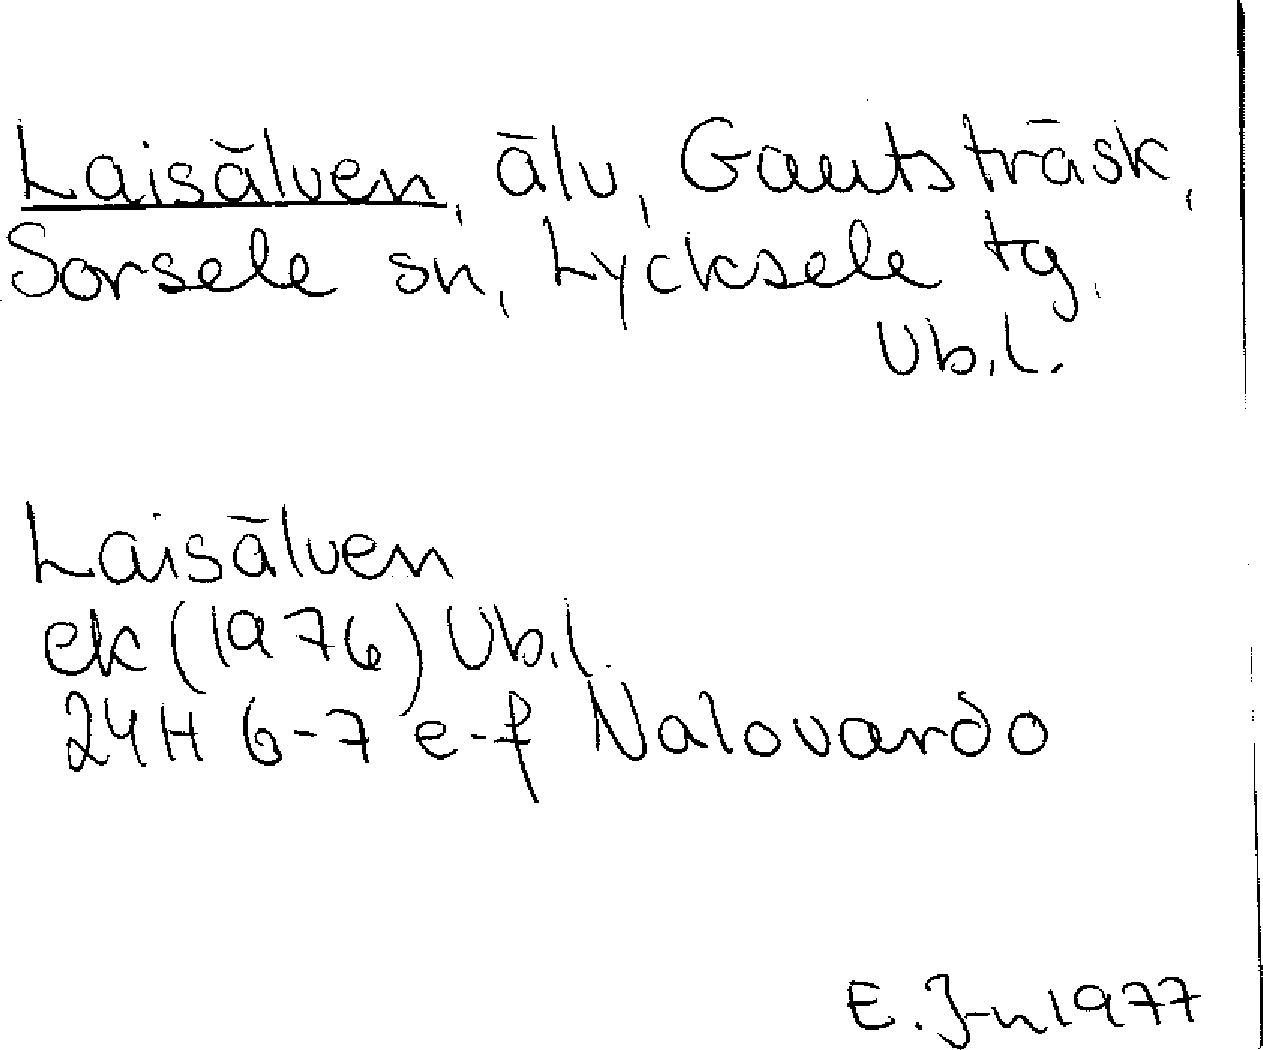 Laisälven, älv, Gautsträsk,
Sorsele sn, Lycksele tg.
Vb.l.
Laisälven
ek (1976) Vb.l.
24H 6-7 e-f Nalovardo
E. J-n 1977